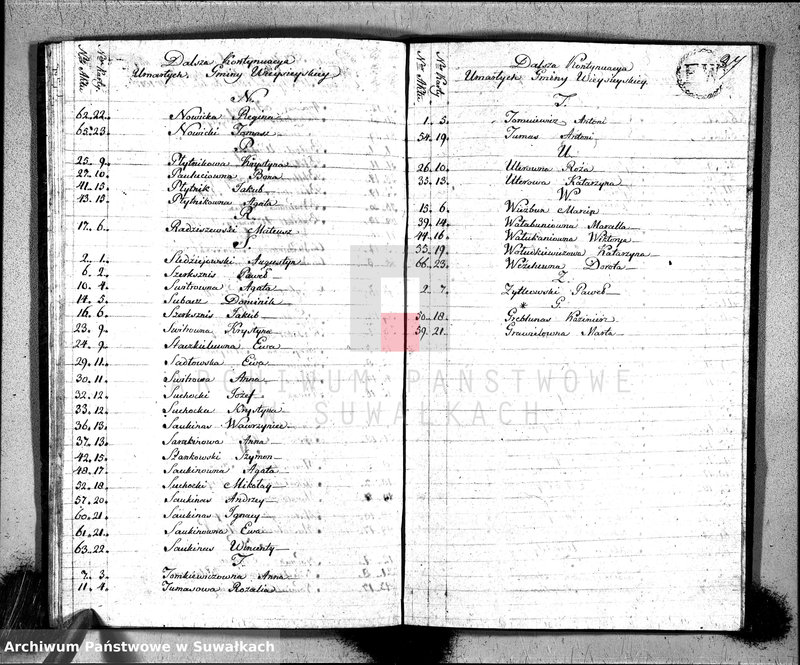 Nro Aktu. Nro Karty
Dalsza Kontynuacya
Umarłych Gminy Wieysieyskiey
N.
62. 22. Nowicka Regina
65. 23. Nowicki Tomasz
P.
25. 9. Płytnikowa Krystyna
27. 10. Pauluciowna Bona
41. 15. Płytnik Jakub
43. 15. Płytnikowna Agata
R.
17. 6. Radziszewski Mateusz
S.
2. 1. Siedziejewski Augustyn
6. 2. Szerksznis Paweł
10. 4. Switrowna Agata
14. 5. Subacz Dominik
16. 6. Szerksznis Jakób
23. 9. Switrowna Krystyna
24. 9. Ewa
29. 11. Sadłowska Ewa
30. 11. Switrowa Anna
32. 12. Suchocki Jozef
33. 12. Suchocka Krystyna
36. 13. Saukinas Wawrzyniec
37. 13. Anna
42. 15. Stankowski Szymon
48. 17. Saukinowna Agata
52. 18. Suchocki Mikołay
57. 20. Saukinas Andrzey
60. 21. Saukinas Ignacy
61. 21. Saukinowna Ewa
63. 22. Saukinas Wincenty
T.
7. 3. Tomkiewiczowna Anna
11. 4. Tumasowa Rozalia
Nro Aktu. Nro Karty
Dalsza Kontynuacya
Umarłych Gminy Wieysieyskiey
T.
1. 5. Antoni
54. 19. Tumas Antoni
U.
26. 10. Ulerowna Róża
35. 13. Ulerowa Katarzyna
W.
15. 6. Wiazbun Marcin
39. 14. Marcella
44. 16. Wiktorya
55. 19. Katarzyna
66. 23. Dorota
Z.
2. 7. Paweł
* G.
50. 18. Kazimierz
59. 21. Marta
ARCHIWUM PAŃSTWOWE
W SUWAŁKACH
Archiwum Państwowe w Suwałkach